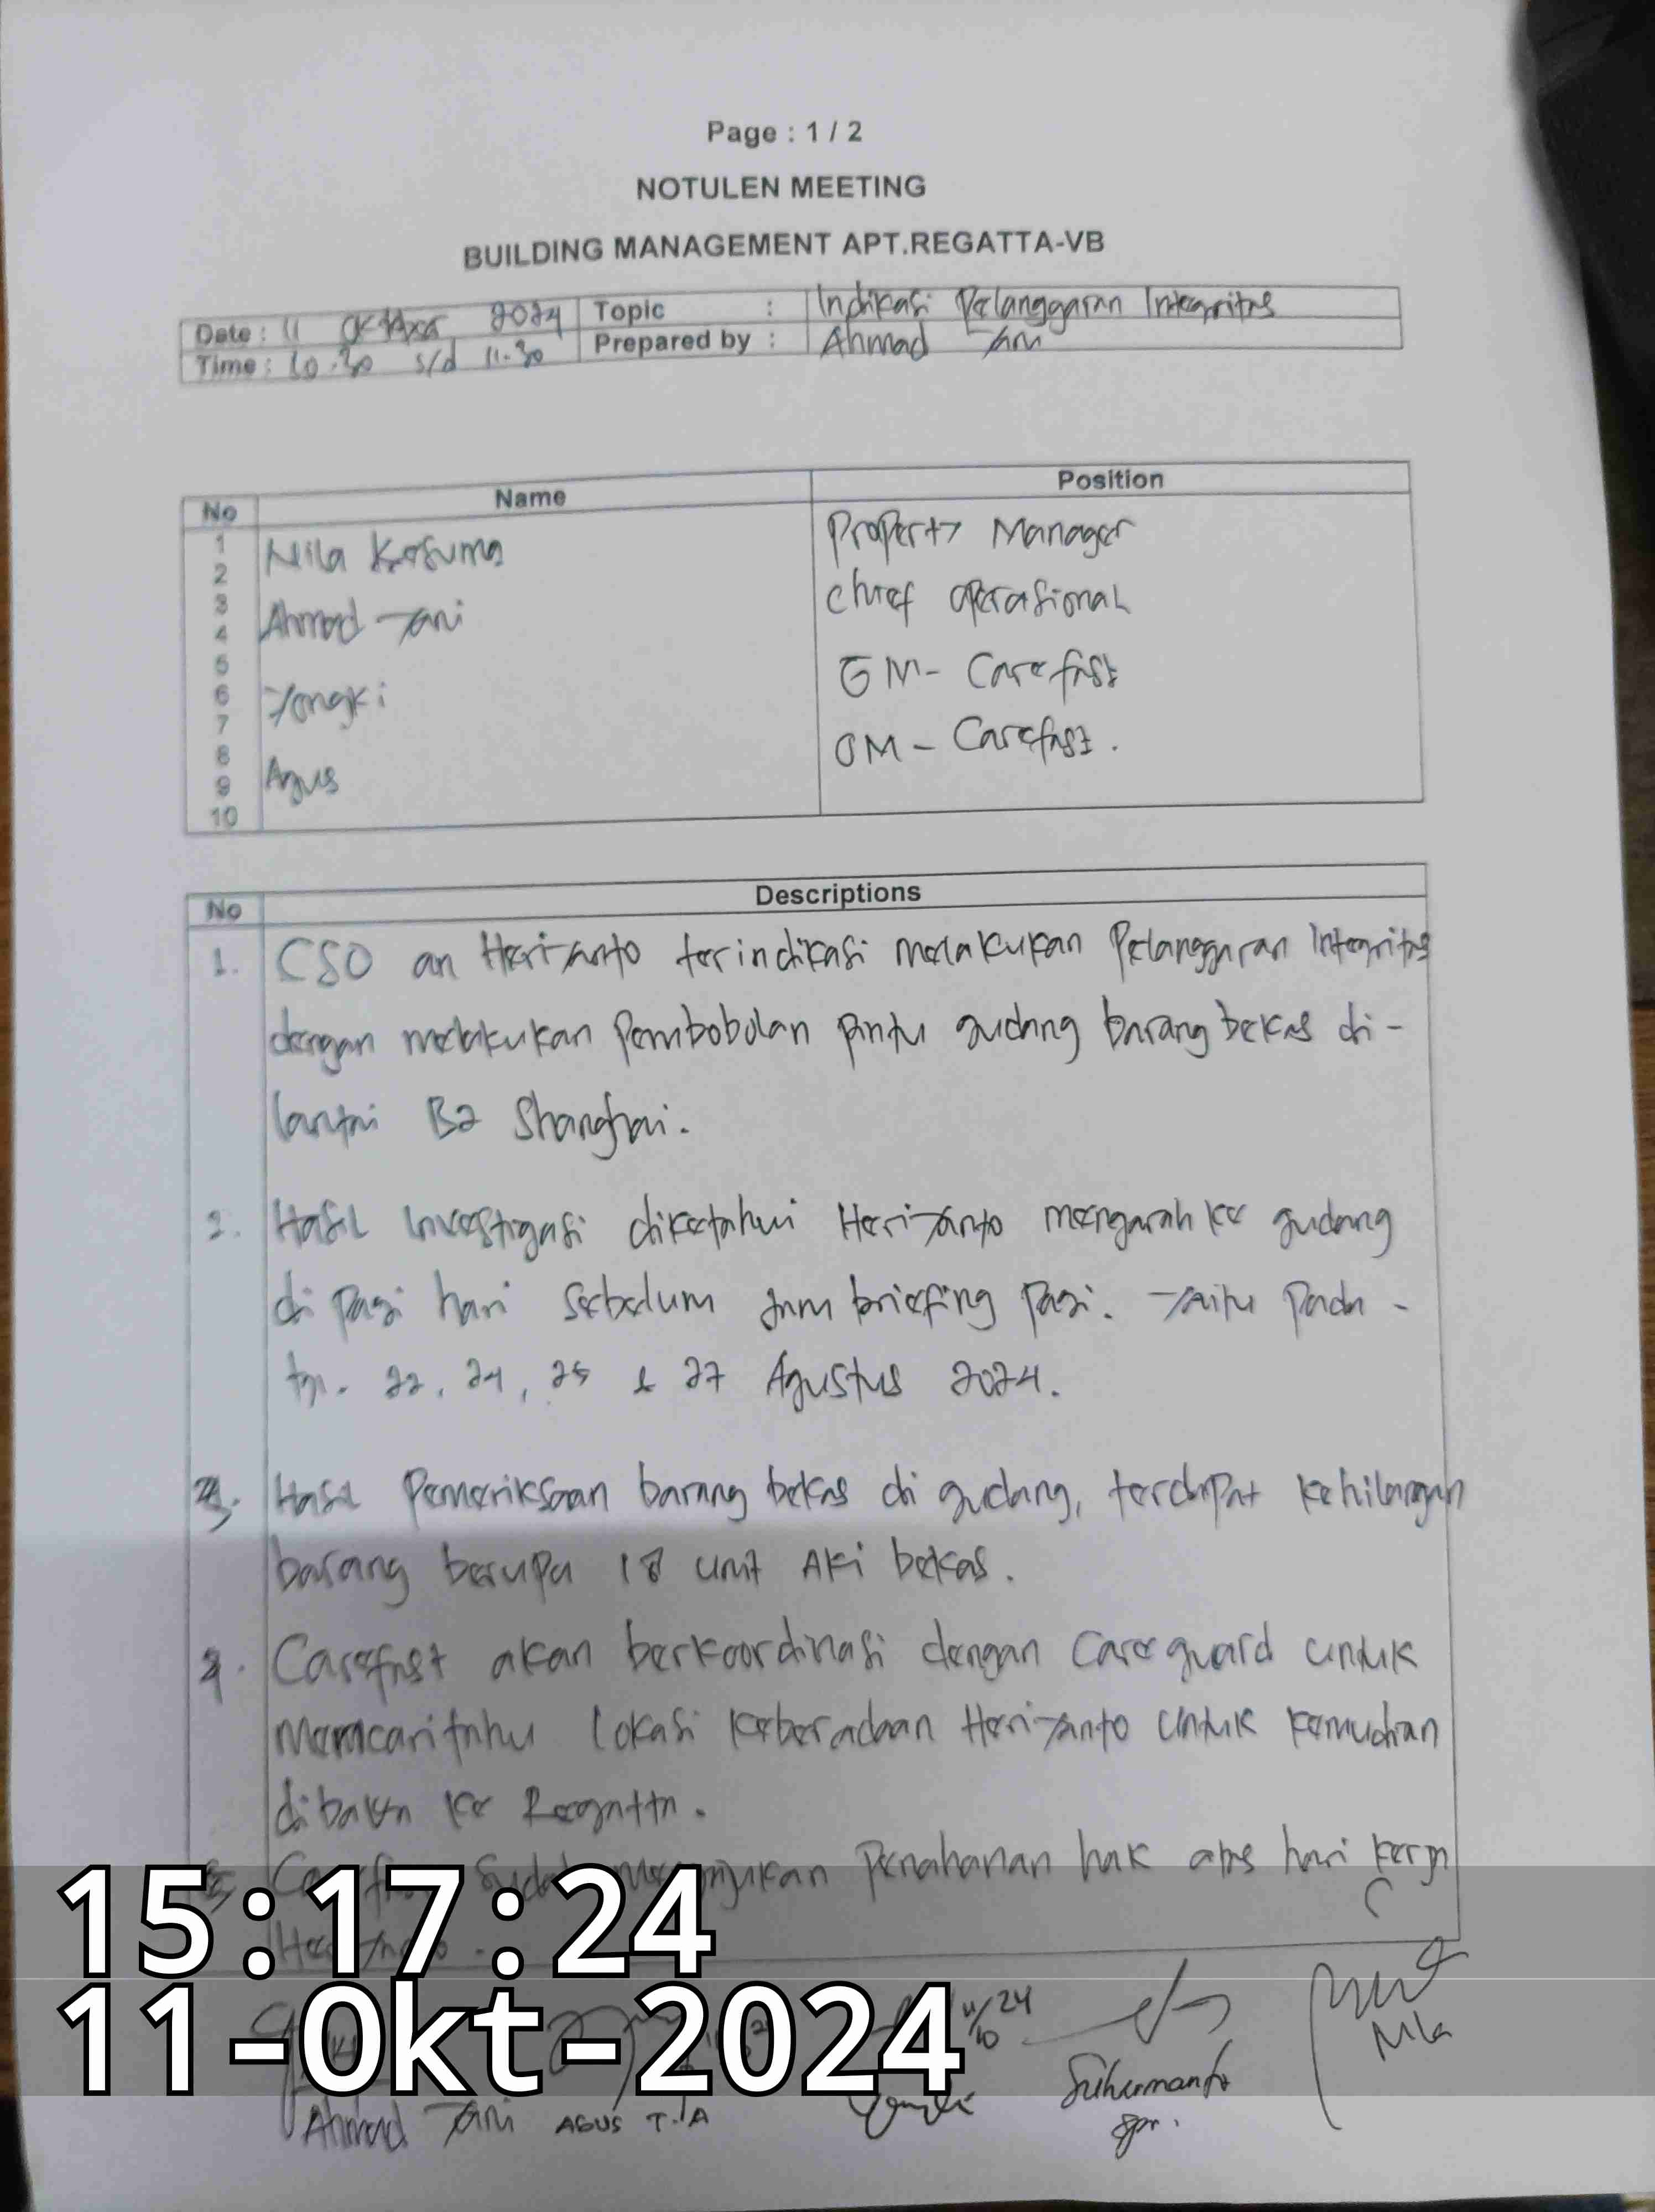 Page : 1 / 2
NOTULEN MEETING
BUILDING MANAGEMENT APT.REGATTA-VB
Date : 11 Oktober 2024 Topic : Indikasi Pelanggaran Integritas
Time : 10.30 s/d 11.30 Prepared by : Ahmad Yani
No Name Position
1
2
3
4
5
6
7
8
9
10
Nila Kosuma Property Manager
Ahmad Yani Chief Operasional
Yongki GM - Carefast
Agus OM - Carefast.
No Descriptions
1. CSO an Heriyanto terindikasi melakukan Pelanggaran Integritas
dengan melakukan Pembobolan pintu gudang barang bekas di-
lantai B2 Shanghai.
2. Hasil Investigasi diketahui Heriyanto mengarah ke gudang
di pagi hari sebelum jam briefing pagi. Yaitu pada -
tgl. 22, 24, 25 & 27 Agustus 2024.
3. Hasil Pemeriksaan barang bekas di gudang, terdapat kehilangan
barang berupa 18 unit Aki bekas.
4. Carefast akan berkoordinasi dengan Careguard untuk
Memcaritahu lokasi keberadaan Heriyanto untuk kemudian
dibawa ke Regatta.
Penahanan hak atas hari kerja
15:17:24
11-Okt-2024
11/10/24
Ahmad Yani AGUS T.IA Suhermanto Nila